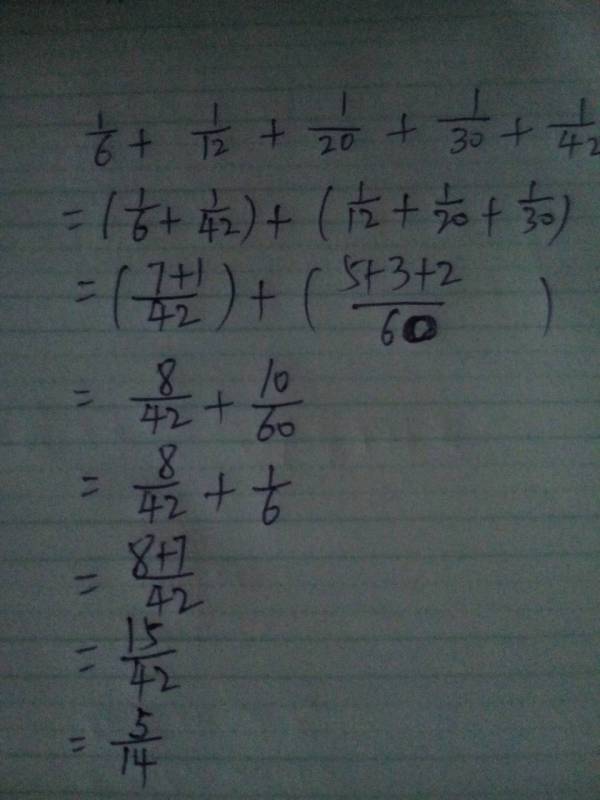 1/6 + 1/12 + 1/20 + 1/30 + 1/42
= (1/6 + 1/42) + (1/12 + 1/20 + 1/30)
= ((7+1)/42) + ((5+3+2)/60)
= 8/42 + 10/60
= 8/42 + 1/6
= (8+7)/42
= 15/42
= 5/14